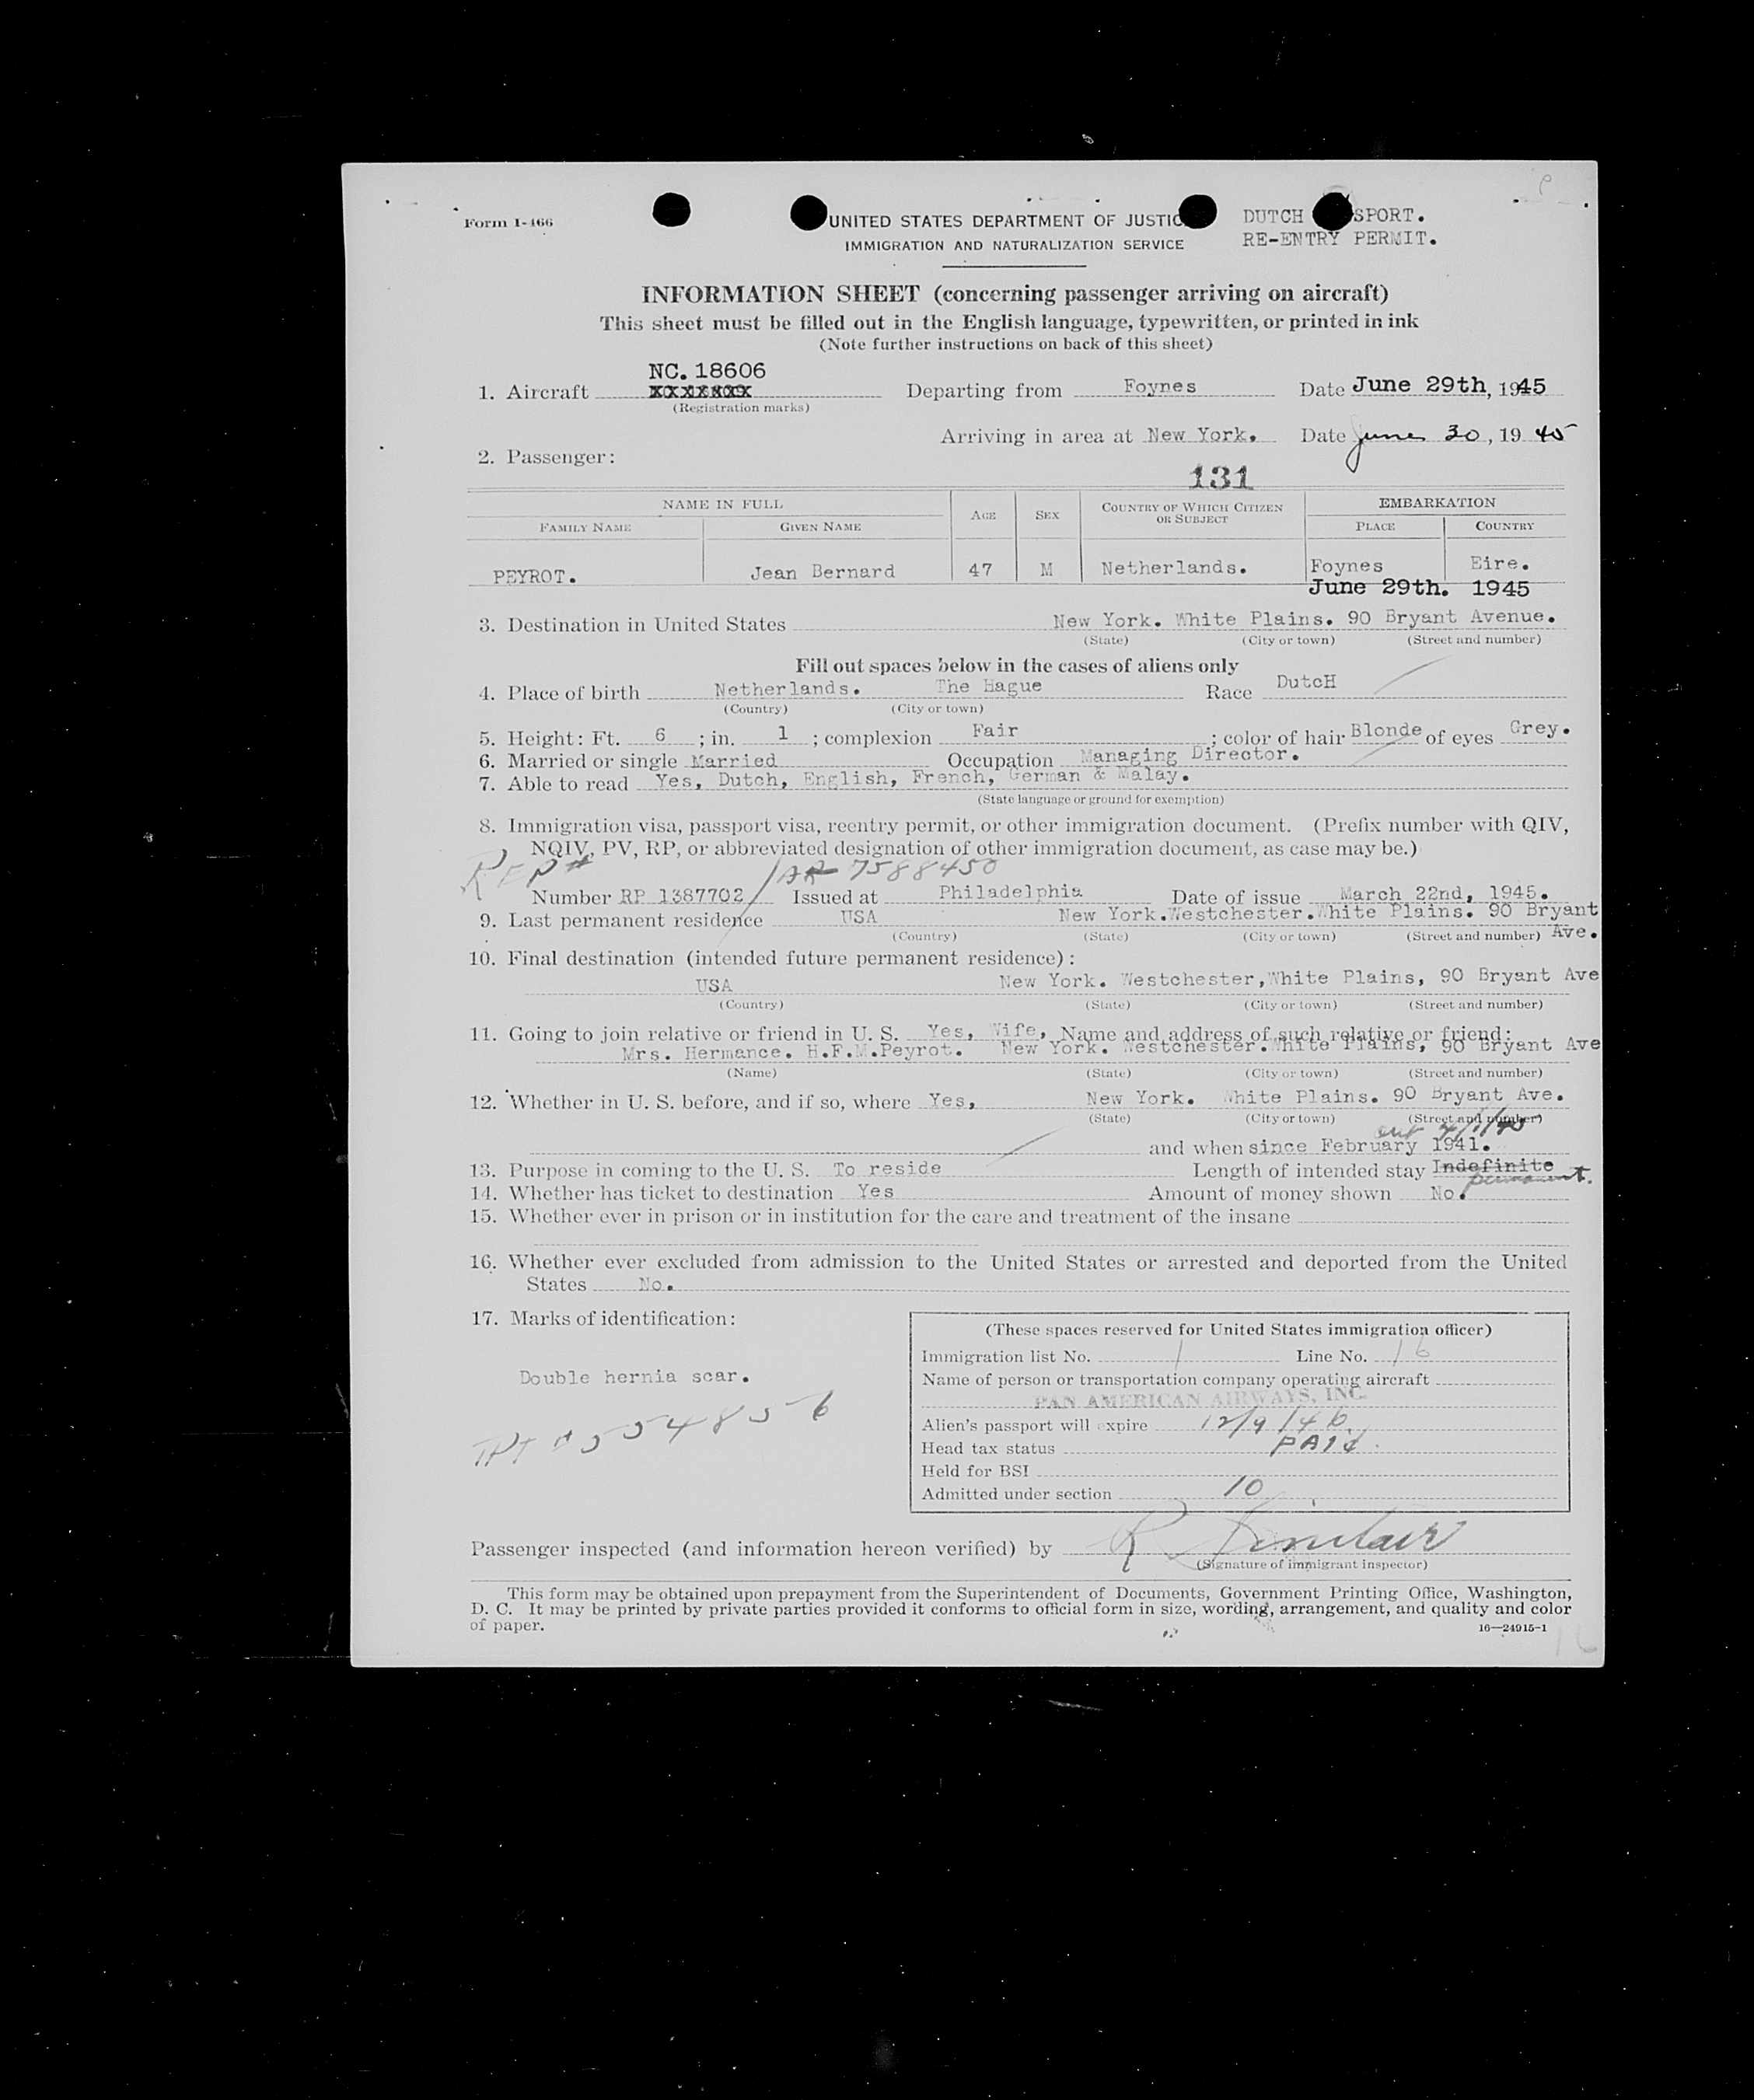 Form I-466
UNITED STATES DEPARTMENT OF JUSTIC
IMMIGRATION AND NATURALIZATION SERVICE
DUTCH SPORT.
RE-ENTRY PERMIT.
INFORMATION SHEET (concerning passenger arriving on aircraft)
This sheet must be filled out in the English language, typewritten, or printed in ink
(Note further instructions on back of this sheet)
NC. 18606
1. Aircraft Departing from Foynes Date June 29th, 1945
(Registration marks)
Arriving in area at New York. Date June 30, 19 45
2. Passenger:
131
NAME IN FULL AGE SEX COUNTRY OF WHICH CITIZEN OR SUBJECT EMBARKATION
FAMILY NAME GIVEN NAME PLACE COUNTRY
PEYROT. Jean Bernard 47 M Netherlands. Foynes Eire.
June 29th. 1945
3. Destination in United States New York. White Plains. 90 Bryant Avenue.
(State) (City or town) (Street and number)
Fill out spaces below in the cases of aliens only
4. Place of birth Netherlands. The Hague Race DutcH
(Country) (City or town)
5. Height: Ft. 6 ; in. 1 ; complexion Fair ; color of hair Blonde of eyes Grey.
6. Married or single Married Occupation Managing Director.
7. Able to read Yes, Dutch, English, French, German & Malay.
(State language or ground for exemption)
8. Immigration visa, passport visa, reentry permit, or other immigration document. (Prefix number with QIV,
NQIV, PV, RP, or abbreviated designation of other immigration document, as case may be.)
REP # /AR 7588450
Number RP 1387702 Issued at Philadelphia Date of issue March 22nd, 1945.
9. Last permanent residence USA New York.Westchester.White Plains. 90 Bryant
(Country) (State) (City or town) (Street and number) Ave.
10. Final destination (intended future permanent residence):
USA New York. Westchester,White Plains, 90 Bryant Ave
(Country) (State) (City or town) (Street and number)
11. Going to join relative or friend in U. S. Yes, Wife, Name and address of such relative or friend:
Mrs. Hermance. H.F.M.Peyrot. New York. Westchester.White Plains, 90 Bryant Ave
(Name) (State) (City or town) (Street and number)
12. Whether in U. S. before, and if so, where Yes, New York. White Plains. 90 Bryant Ave.
(State) (City or town) (Street and number)
and when since February 1941.
13. Purpose in coming to the U. S. To reside Length of intended stay Indefinite
permanent.
14. Whether has ticket to destination Yes Amount of money shown No.
15. Whether ever in prison or in institution for the care and treatment of the insane
16. Whether ever excluded from admission to the United States or arrested and deported from the United
States No.
17. Marks of identification:
Double hernia scar.
TPT # 554856
(These spaces reserved for United States immigration officer)
Immigration list No. 1 Line No. 16
Name of person or transportation company operating aircraft
PAN AMERICAN AIRWAYS, INC.
Alien's passport will expire 12/9/46
Head tax status PAId
Held for BSI
Admitted under section 10
Passenger inspected (and information hereon verified) by R Sinclair
(Signature of immigrant inspector)
This form may be obtained upon prepayment from the Superintendent of Documents, Government Printing Office, Washington,
D. C. It may be printed by private parties provided it conforms to official form in size, wording, arrangement, and quality and color
of paper.
16—24915-1